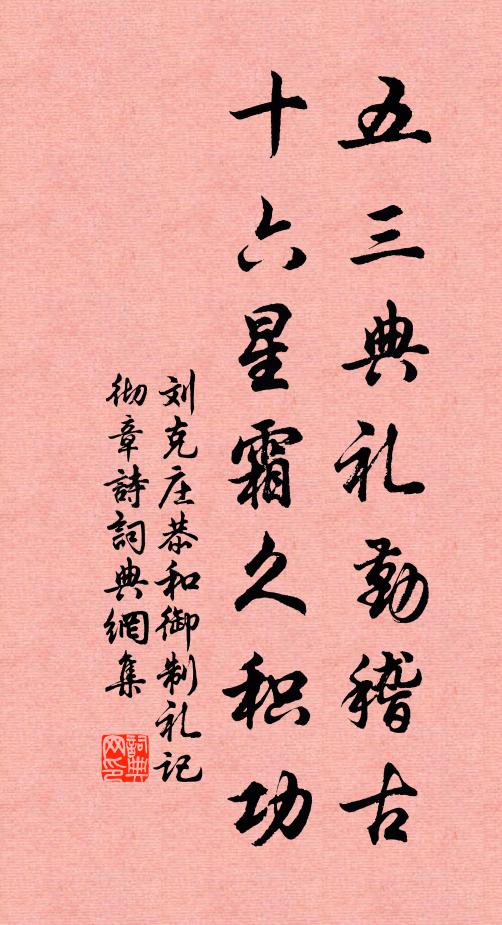 五三典礼勤稽古
十六星霜久积功
刘克庄恭和御制礼记
彻章詩詞典網集
詞典
网印